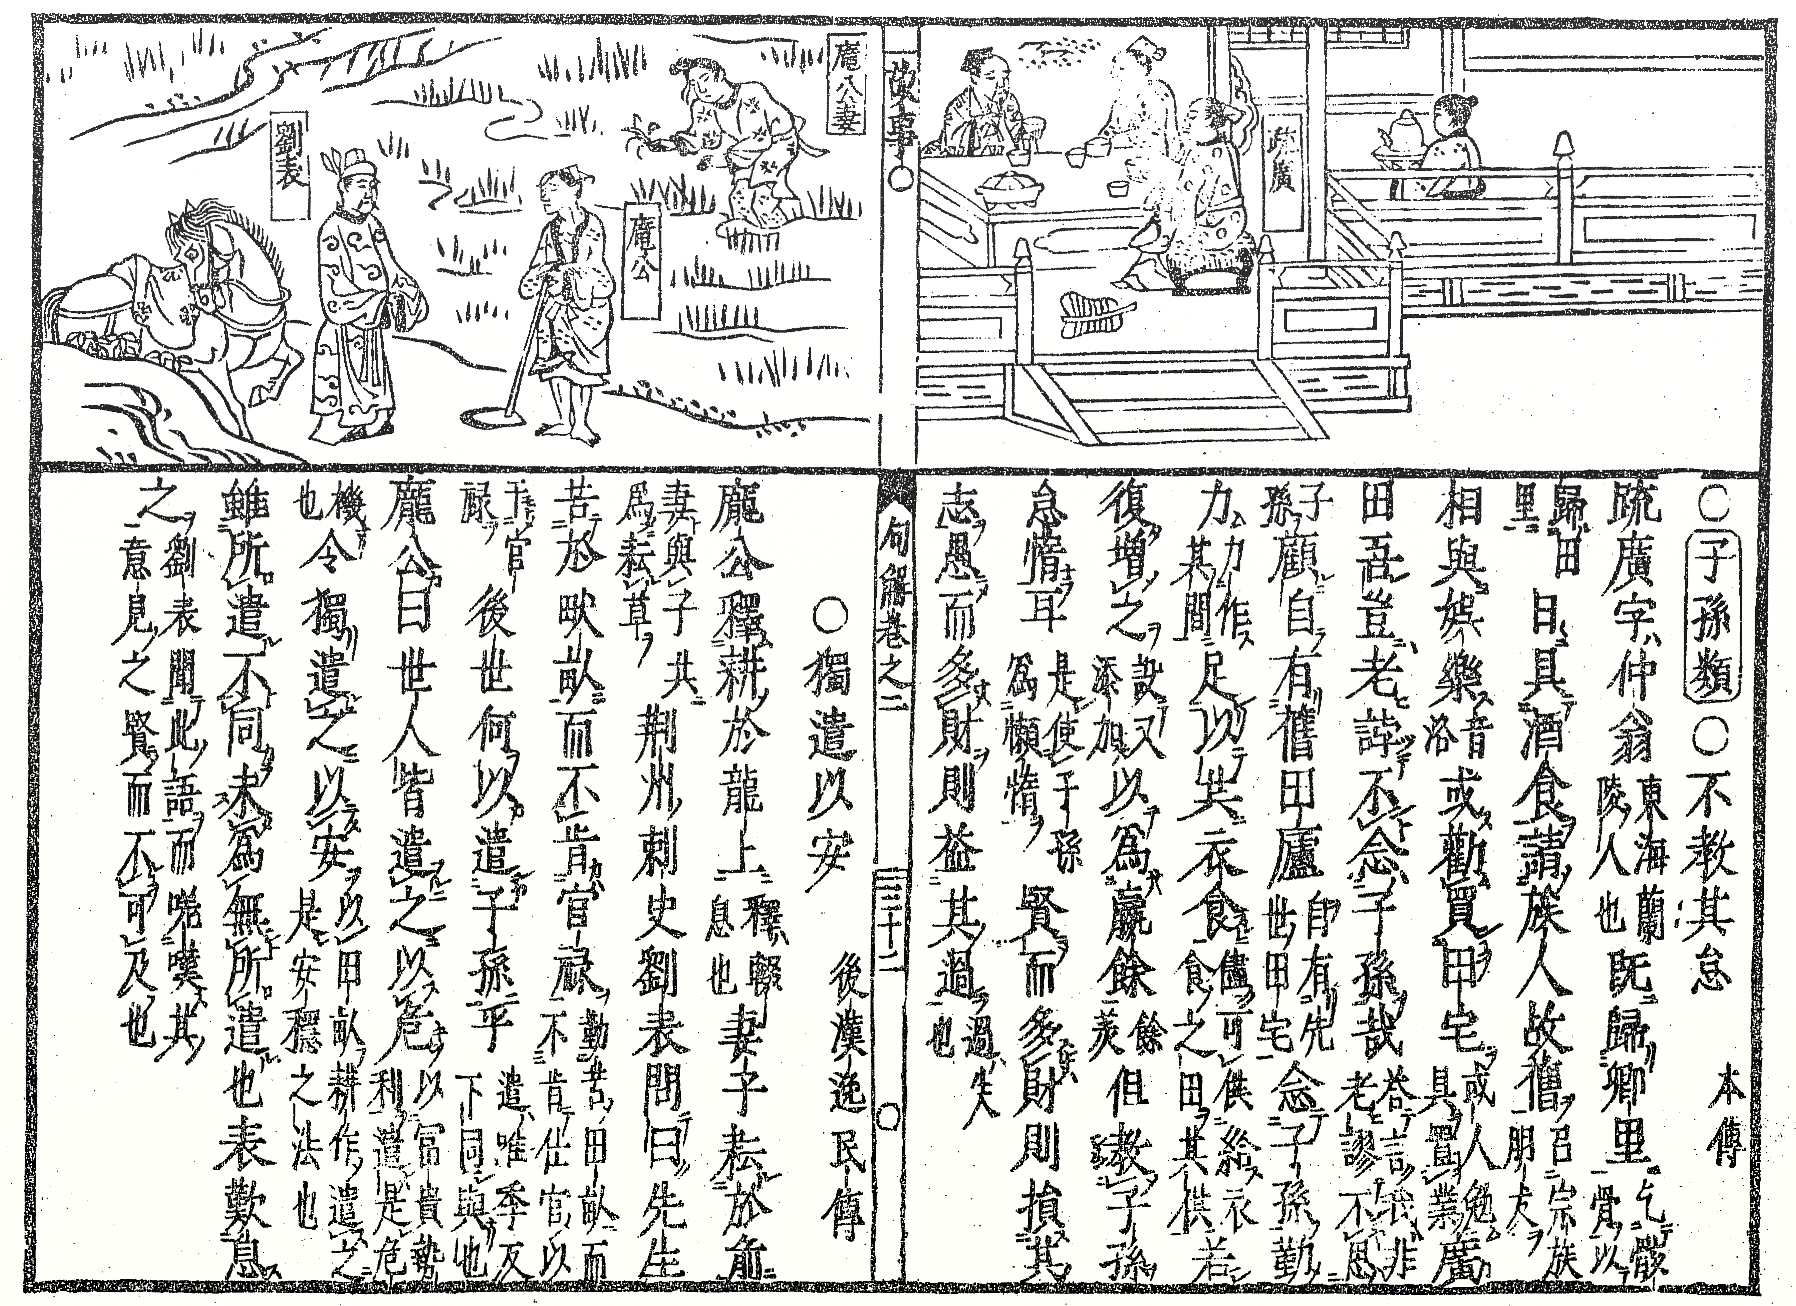 疏廣
○子孫類○不教其怠 本傳
疏廣字仲翁 東海蘭陵人也 既歸鄉里 乞骸骨以
歸田里 日具酒食請族人故舊 召宗族朋友
相與娯樂 音洛 或勸買田宅 或人勉具置業 廣
田吾豈老誖不念子孫哉 答言我非老謬不思
子孫 顧自有舊田廬 即有先世田宅 念子孫勤
力 力作其間 足以共衣食 儘可供給衣食之田其供 若
復增之 設又添加 以為贏餘 餘羨 但教子孫
怠惰耳 是使子孫為懶惰 賢而多財則損其
志愚而多財則益其過 過失也
故事○
句解卷之二 三十二○
龐公妻
龐公
劉表
○獨遺以安 後漢逸民傳
龐公釋耕於龍上 釋輟息也 妻子耘於前
妻與子共為耘草 荆州刺史劉表問曰先生
苦於畎畝而不肯官祿 勤苦田畝而不肯仕官以
干官祿 後世何以遺子孫乎 遺唯季反下同與也
龐公曰世人皆遺之以危 以富貴勢利遺是危
機也 令獨遺之以安 以田畝耕作遺之是安穩之法也
雖所遺不同未為無所遺也表歎息
之 劉表聞此語而嗟嘆其意見之賢而不可及也